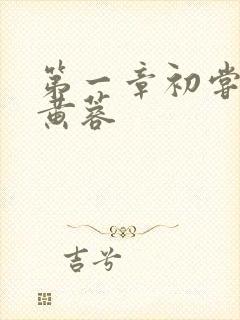 第一章初尝
黄蓉
吉兮